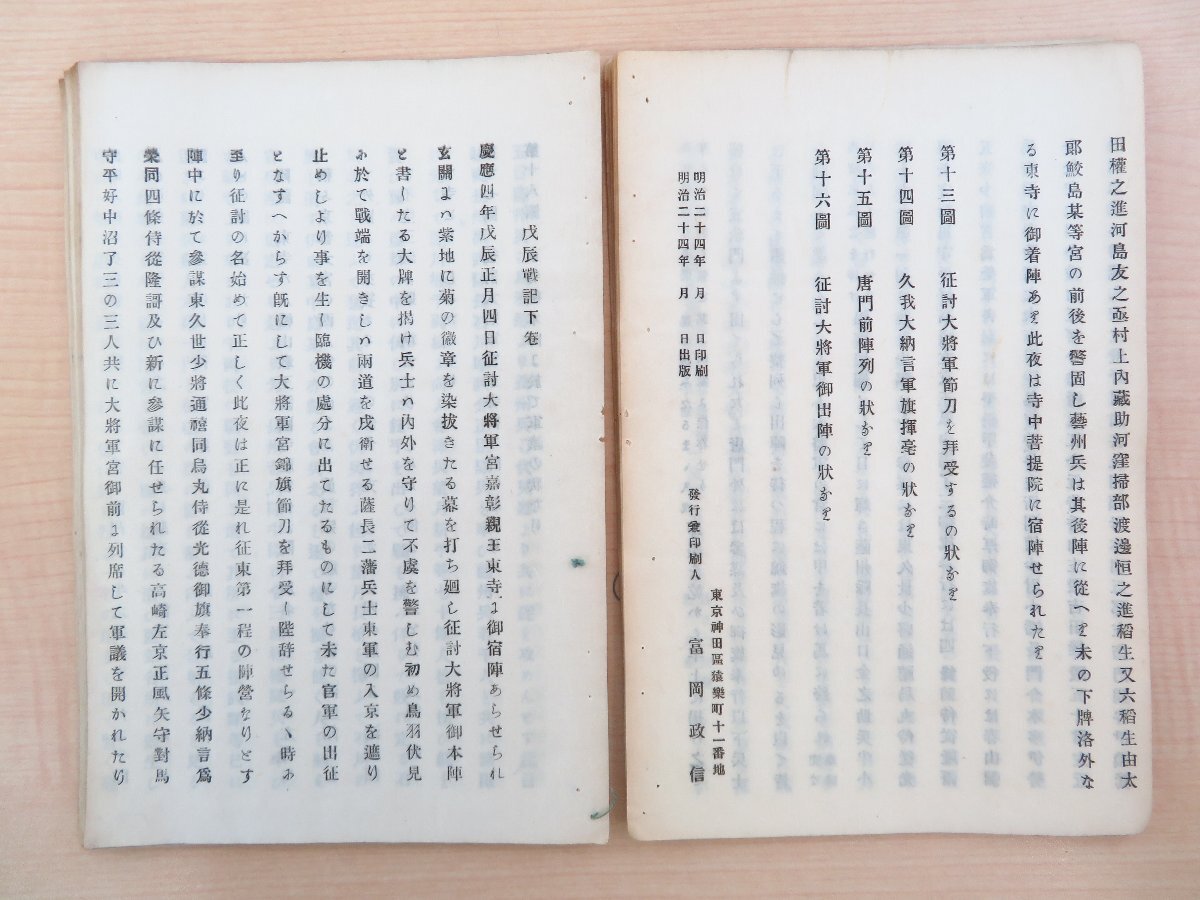 田權之進河島友之亟村上內藏助河窪掃部渡邊恒之進稻生又六稻生由太
郎鮫島某等宮の前後を警固し藝州兵は其後陣に從へり未の下牌洛外な
る東寺に御着陣あり此夜は寺中菩提院に宿陣せられたり
第十三圖 征討大將軍節刀を拜受するの狀なり
第十四圖 久我大納言軍旗揮毫の狀なり
第十五圖 唐門前陣列の狀なり
第十六圖 征討大將軍御出陣の狀なり
明治二十四年 月 日印刷
明治二十四年 月 日出版
東京神田區猿樂町十一番地
發行兼印刷人 富岡政信
戊辰戰記下卷
慶應四年戊辰正月四日征討大將軍宮嘉彰親王東寺に御宿陣あらせられ
玄關には紫地に菊の徽章を染拔きたる幕を打ち廻し征討大將軍御本陣
と書したる大牌を揭け兵士は內外を守りて不虞を警しむ初め鳥羽伏見
に於て戰端を開きしは兩道を戍衛せる薩長二藩兵士東軍の入京を遮り
止めしより事を生し臨機の處分に出てたるものにして未た官軍の出征
となすへからす旣にして大將軍宮錦旗節刀を拜受し陛辭せらるゝ時に
至り征討の名始めて正しく此夜は正に是れ征東第一程の陣營なりとす
陣中に於て參謀東久世少將通禧同烏丸侍從光德御旗奉行五條少納言爲
榮同四條侍從隆謌及ひ新に參謀に任せられたる高崎左京正風矢守對馬
守平好中沼了三の三人共に大將軍宮御前に列席して軍議を開かれたり